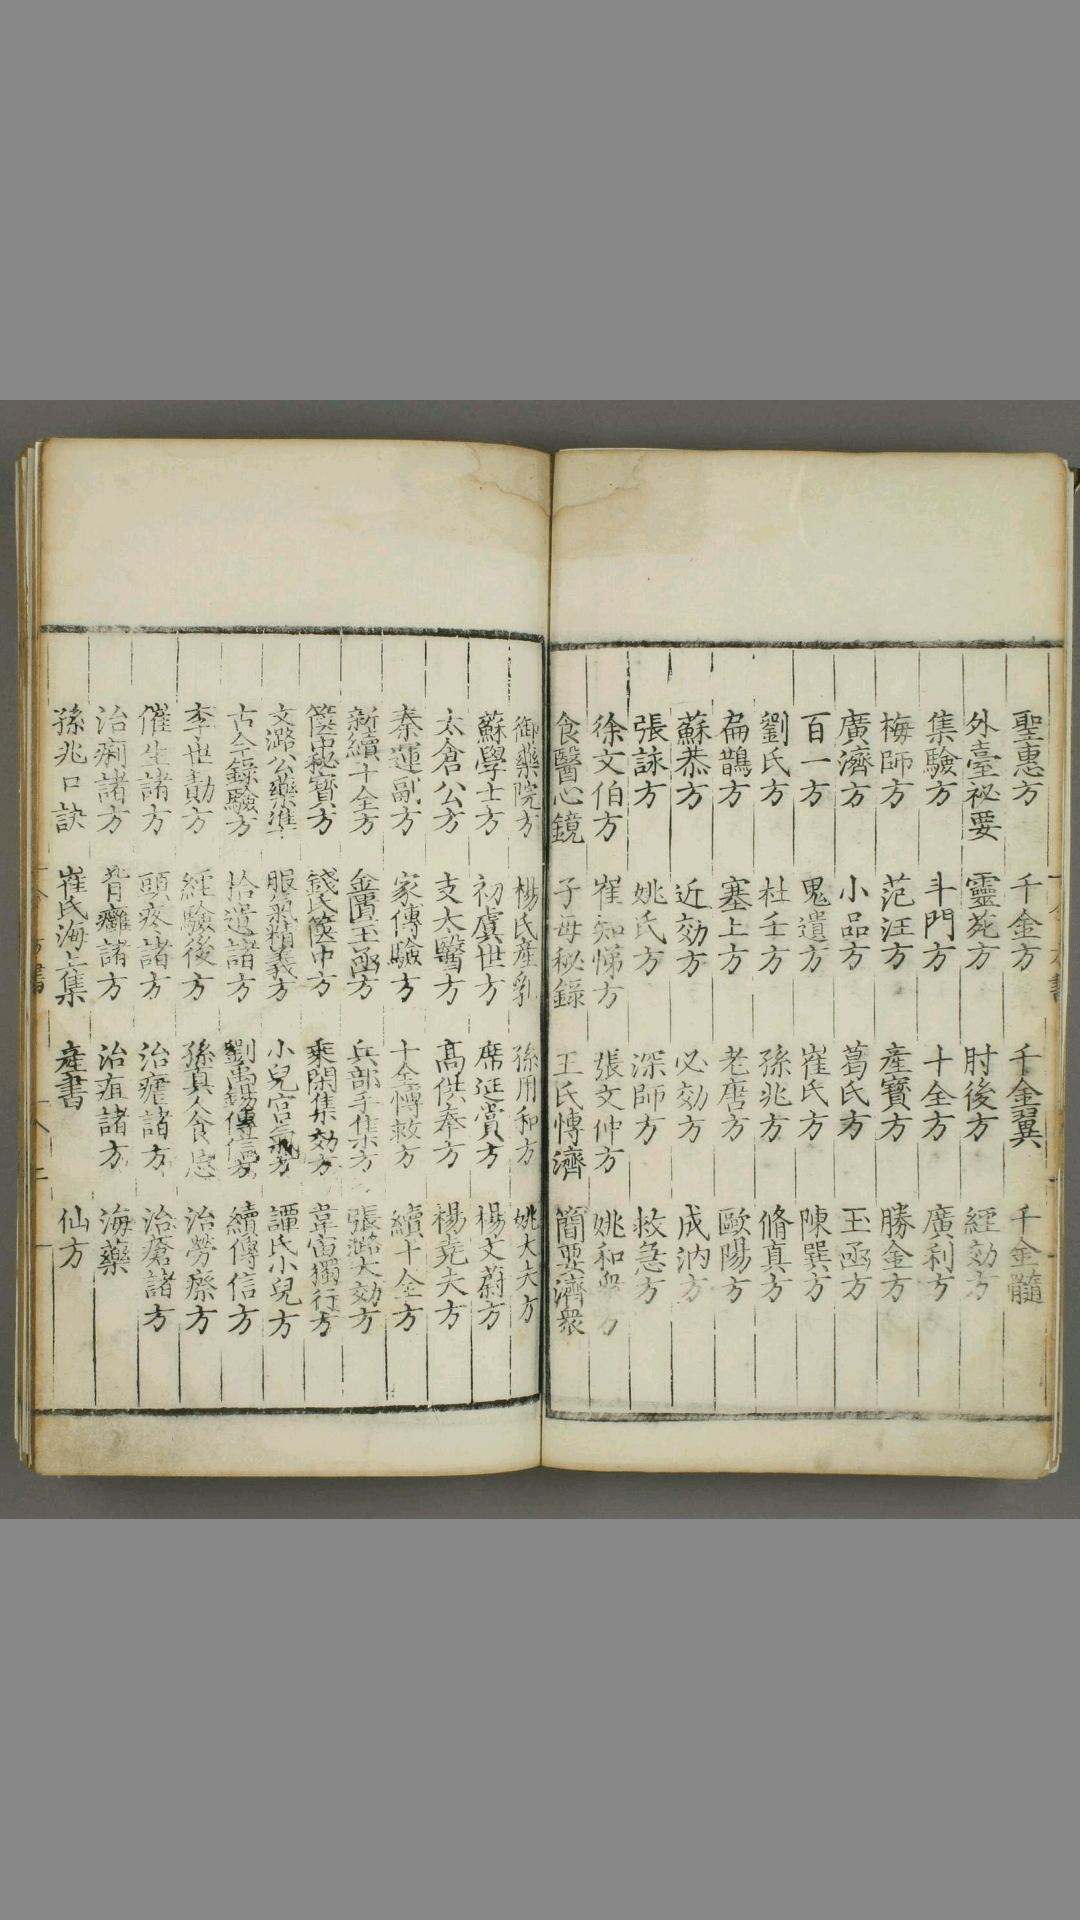 聖惠方 千金方 千金翼 千金髓
外臺祕要 靈苑方 肘後方 經効方
集驗方 斗門方 十全方 廣利方
梅師方 范汪方 產寶方 勝金方
廣濟方 小品方 葛氏方 王函方
百一方 鬼遺方 崔氏方 陳巽方
劉氏方 杜壬方 孫兆方 脩真方
扁鵲方 塞上方 老唐方 歐陽方
蘇恭方 近効方 必効方 成汭方
張詠方 姚氏方 深師方 救急方
徐文伯方 崔知悌方 張文仲方 姚和衆方
食醫心鏡 子母秘錄 王氏愽濟 簡要濟衆
御藥院方 楊氏產乳 孫用和方 姚大夫方
蘇學士方 初虞世方 席延賞方 楊文蔚方
太倉公方 支太醫方 髙供奉方 楊堯夫方
秦運副方 家傳驗方 十全愽救方 續十全方
新續十全方 金匱玉函方 兵部手集方 張潞大効方
篋中秘寶方 錢氏篋中方 乘閑集効方 韋宙獨行方
文潞公藥准 服氣精義方 小兒宮氣方 譚氏小兒方
古今錄驗方 拾遺諸方 劉禹錫傳信方 續傳信方
李世勣方 經驗後方 孫真人食忌 治勞瘵方
催生諸方 頭疼諸方 治瘧諸方 治瘡諸方
治痢諸方 背癰諸方 治疽諸方 海藥
孫兆口訣 崔氏海上集 產書 仙方